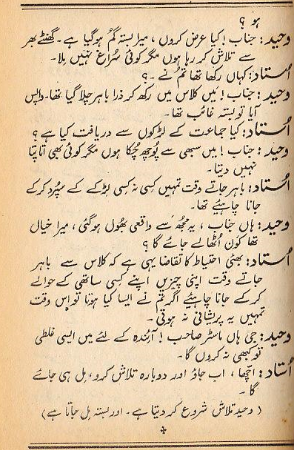 ہو ؟
وحید : جناب ! کیا عرض کروں ، میرا بستہ گم ہوگیا ہے ۔ گھنٹے بھر
سے تلاش کر رہا ہوں مگر کوئی سُراغ نہیں ملا۔
اُستاد : کہاں رکھا تھا تُم نے ۔ ؟
وحید : جناب ! میں کلاس میں رکھ کر ذرا باہر چلا گیا تھا۔ واپس
آیا تو بستہ غائب تھا۔
اُستاد : کیا جماعت کے لڑکوں سے دریافت کیا ہے ؟
وحید : جناب ! میں سبھی سے پُوچھ چُکا ہوں مگر کوئی بھی اتا پتا
نہیں دیتا۔
اُستاد : باہر جاتے وقت تمہیں کسی نہ کسی لڑکے کے سپُرد کر کے
جانا چاہئیے تھا۔
وحید : ہاں جناب ، یہ مجھ سے واقعی بھُول ہوگئی ، میرا خیال
تھا کون اُٹھا لے جائے گا ؟
اُستاد : بھئی احتیاط کا تقاضا یہی ہے کہ کلاس سے باہر
جاتے وقت اپنی چیزیں اپنے کسی ساتھی کے حوالے
کر کے جانا چاہئیے اگر تم نے ایسا کیا ہوتا تو اس وقت
تمہیں یہ پریشانی نہ ہوتی ۔
وحید : جی ہاں ماسٹر صاحب ! آئندہ کے لئے میں ایسی غلطی
تو کبھی نہ کروں گا۔
اُستاد : اچھا ، اب جاؤ اور دوبارہ تلاش کرو ، مل ہی جائے
گا ۔
( وحید تلاش شروع کر دیتا ہے۔ اور بستہ مل جاتا ہے )